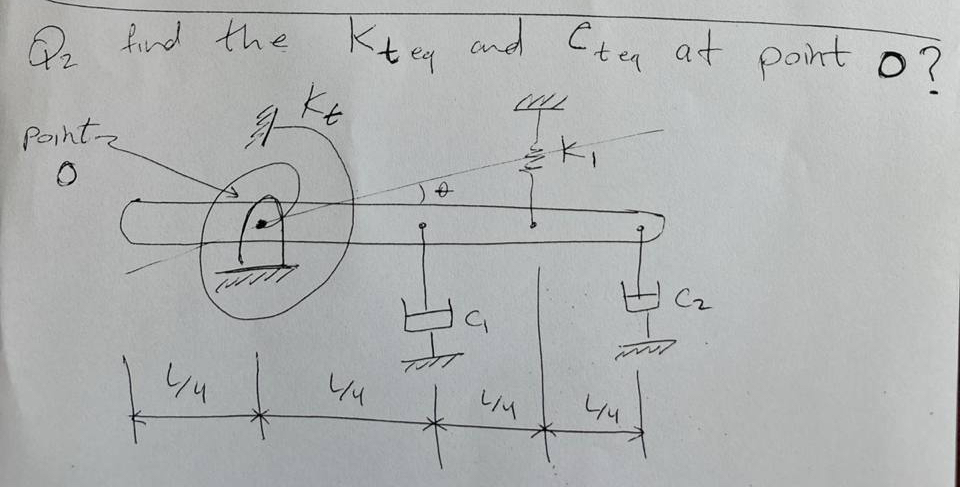 Q2 find the Kteq and Cteq at point O?
Kt
point
O
K1
θ
C1
C2
L/4 L/4 L/4 L/4